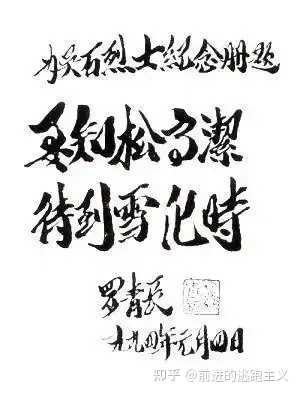 为吴石烈士紀念册题
要知松高潔
待到雪化時
罗青長
一九九四年元月四日
知乎 @前进的逃跑主义